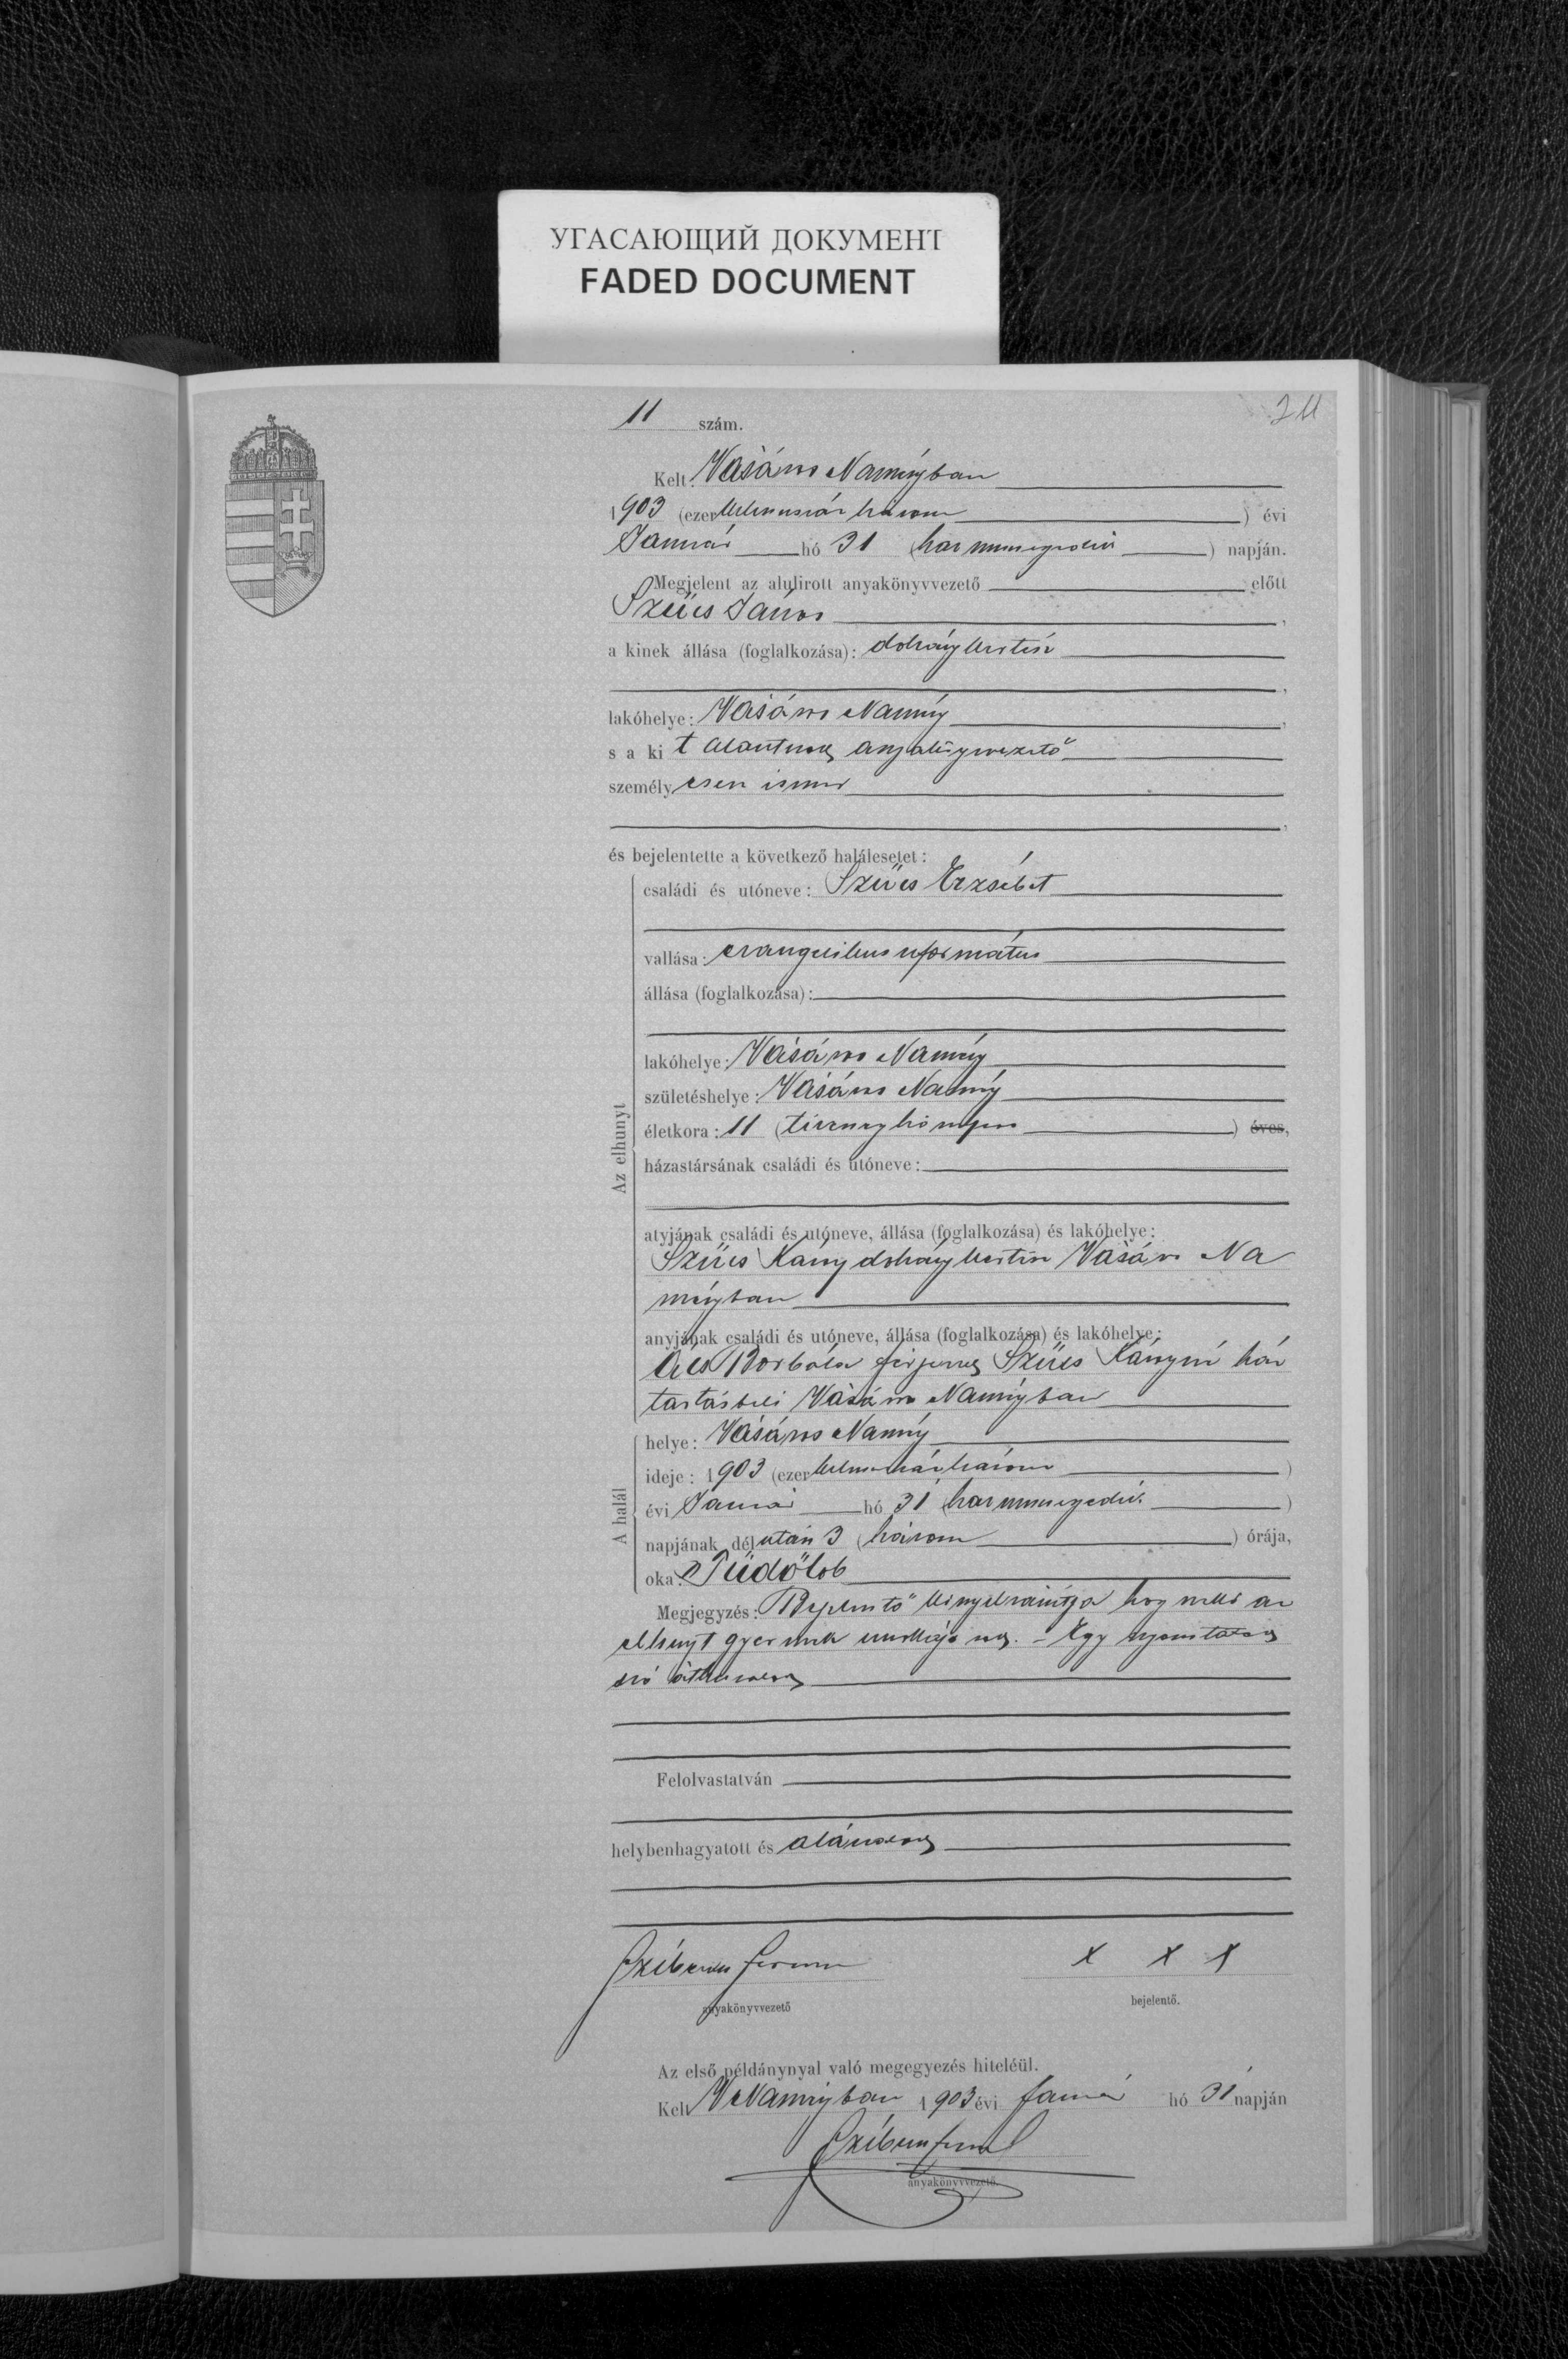 УГАСАЮЩИЙ ДОКУМЕНТ
FADED DOCUMENT
11 szám.
211
Kelt Vásáros Naményban
1903 (ezerkilenczszáz három) évi
Január hó 31 (harminczegyedik) napján.
Megjelent az alulirott anyakönyvvezető előtt
Szűcs János,
a kinek állása (foglalkozása): dohánykertész
lakóhelye: Vásáros Namény,
s a kit alantirott anyakönyvvezető
személyesen ismer
és bejelentette a következő halálesetet:
Az elhunyt
családi és utóneve: Szűcs Erzsébet
vallása: evangelikus református
állása (foglalkozása):
lakóhelye: Vásáros Namény
születéshelye: Vásáros Namény
életkora: 11 (tizenegy hónapos) éves,
házastársának családi és utóneve:
atyjának családi és utóneve, állása (foglalkozása) és lakóhelye:
Szűcs dohánykertész Vásáros Na
ményban
anyjának családi és utóneve, állása (foglalkozása) és lakóhelye:
Ács Borbála férjezett Szűcs ház
tartásbeli Vásáros Naményban
A halál
helye: Vásáros Namény
ideje: 1903 (ezerkilenczszázhárom)
évi Január hó 31 (harminczegyedik)
napjának délután 3 (három) órája,
oka: Tüdőlob
Megjegyzés: Bejelentő kinyilvánítja hogy az
elhunyt gyermek . – Egy nyomtatott
szó
Felolvastatván
helybenhagyatott és aláíratott
x x x
anyakönyvvezető
bejelentő.
Az első példánynyal való megegyezés hiteléül.
Kelt VNaményban 1903 évi Január hó 31 napján
anyakönyvvezető.